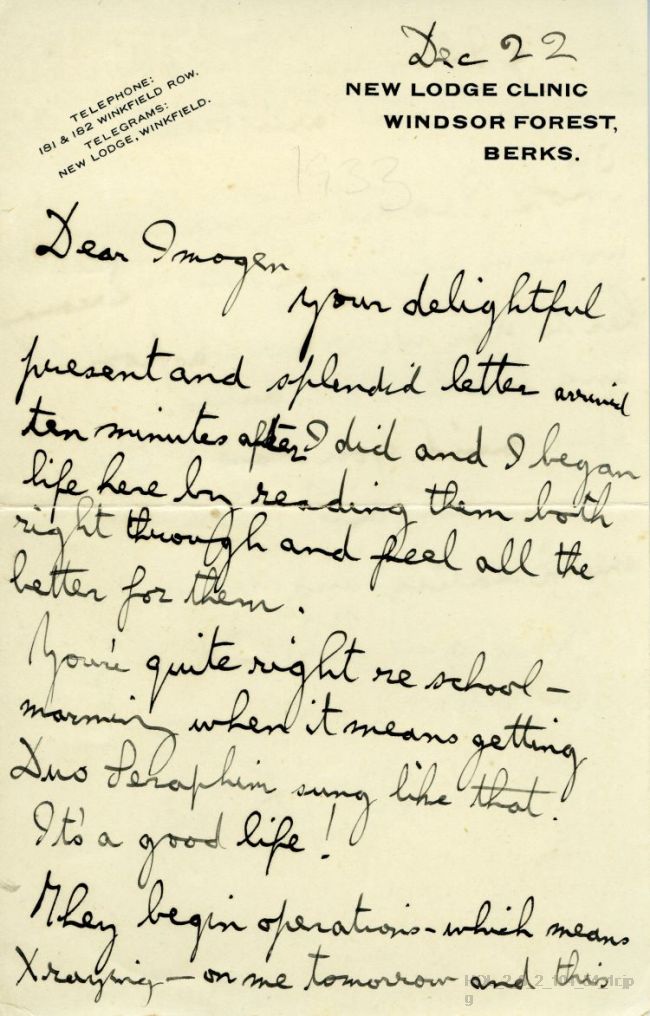 Dec 22
TELEPHONE:
191 & 182 WINKFIELD ROW.
TELEGRAMS:
NEW LODGE, WINKFIELD.
NEW LODGE CLINIC
WINDSOR FOREST,
BERKS.
1933
Dear Imogen
your delightful
present and splendid letter arrived
ten minutes after I did and I began
life here by reading them both
right through and feel all the
better for them.
You're quite right re school-
marming when it means getting
Duo Seraphim sung like that.
It's a good life!
They begin operations - which means
Xraying - on me tomorrow and this